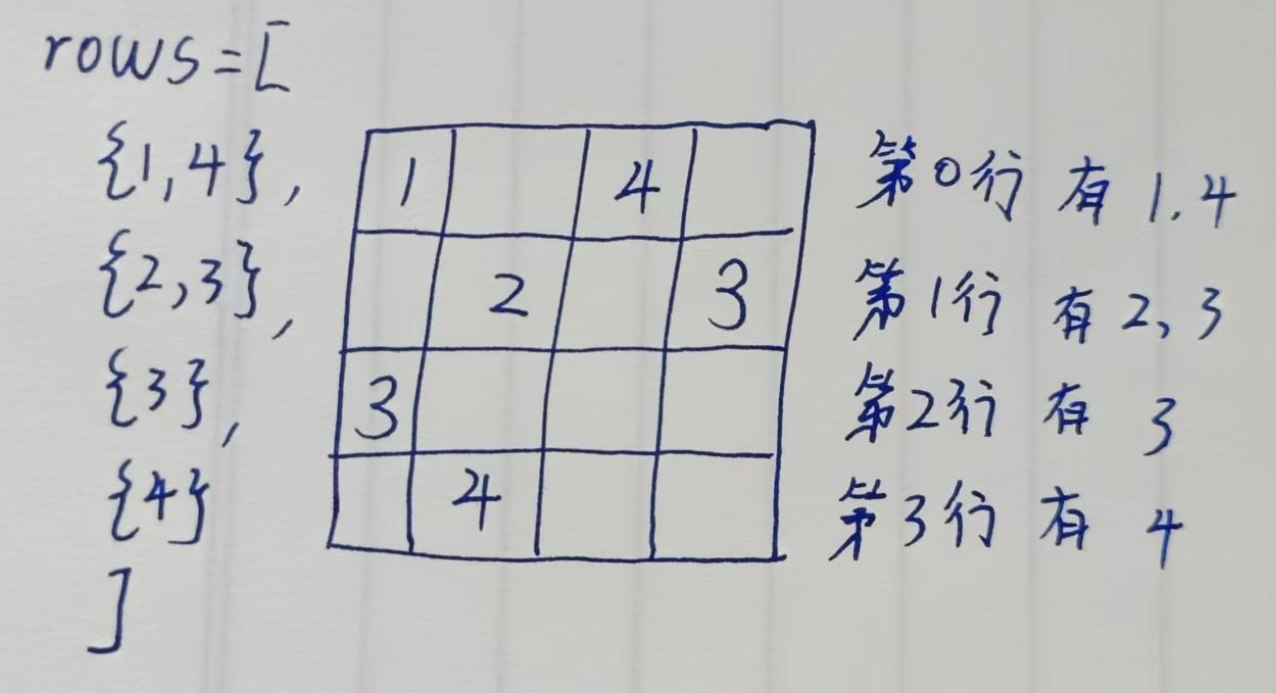 rows=[
{1,4}, 1 4 第0行 有 1.4
{2,3}, 2 3 第1行 有 2、3
{3}, 3 第2行 有 3
{4} 4 第3行 有 4
]